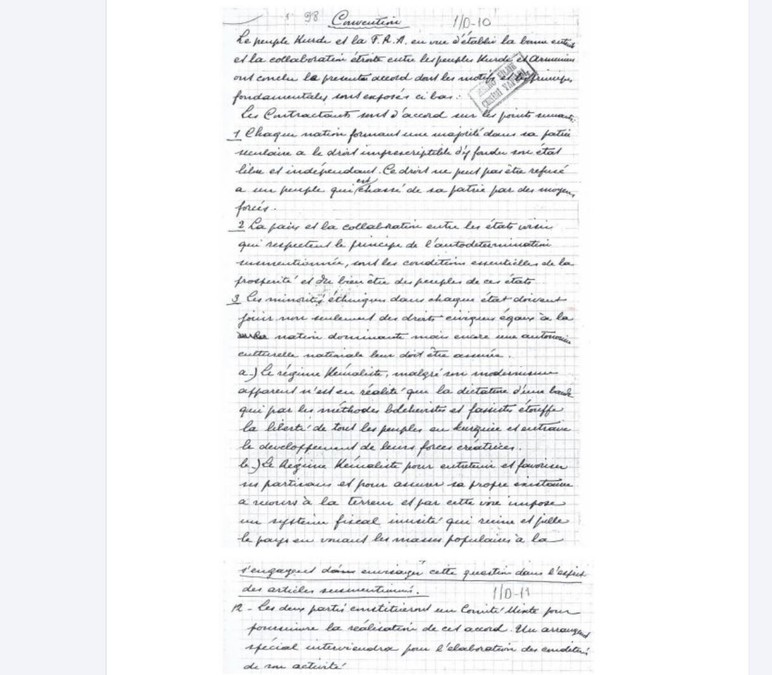 98 Convention 1/D-10
Le peuple Kurde et la F.R.A. en vue d'établir la bonne entente
et la collaboration étroite entre les peuples Kurde et Arménien
ont conclu le présente accord dont les motifs et les principes
fondamentales sont exposés ci bas:
Les Contractants sont d'accord sur les points suivants:
1 Chaque nation formant une majorité dans sa patrie
séculaire a le droit imprescriptible d'y fonder son état
libre et indépendant. Ce droit ne peut pas être refusé
a un peuple qui est chassé de sa patrie par des moyens
forcés.
2 La paix et la collaboration entre les états voisins
qui respectent le principe de l'autodetermination
susmentionnée, sont les conditions essentielles de la
prosperité et du bien être des peuples de ces états
3 Les minorités éthniques dans chaque état doivent
jouir non seulement des droits civiques égaux à la
nation dominante mais encore une autonomie
culturelle nationale leur doit être assurée.
a.) Le régime Kémaliste, malgré son modernisme
apparent n'est en réalité que la dictature d'une bande
qui par les méthodes bolchevistes et fassistes étouffe
la liberté de tout les peuples en turquie et entrave
le developpement de leurs forces créatrices.
b.) Le Régime Kémaliste pour entretenir et favoriser
ses partisans et pour assurer sa propre existence
a recours à la terreur et par cette voie impose
un système fiscal inusité qui ruine et pille
le pays en vouant les masses populaires à la
s'engagent dans envisager cette question dans l'esprit
des articles susmentionnés. 1/D-11
12 - Les deux partis constitueront un Comité Mixte pour
poursuivre la réalisation de cet accord. Un arrangement
spécial interviendra pour l'élaboration des conditions
de son activité